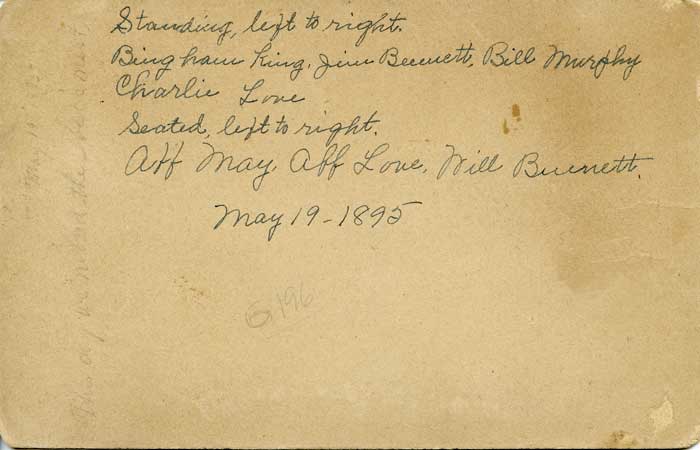 Standing, left to right.
Bingham King, Jim Bennett, Bill Murphy
Charlie Love
Seated, left to right.
Aff May, Aff Love, Will Burnett.
May 19 - 1895
G196